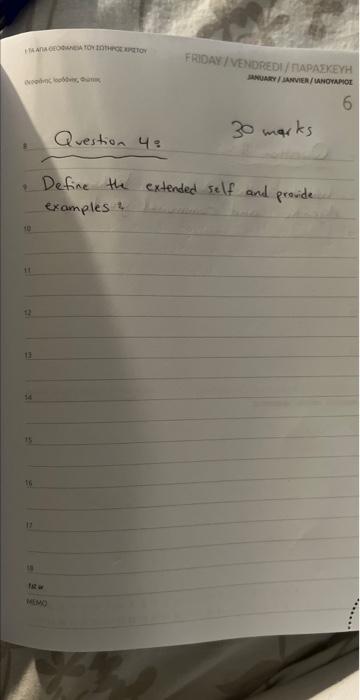 ΤΑ ΑΓΙΑ ΘΕΟΦΑΝΕΙΑ ΤΟΥ ΣΩΤΗΡΟΣ ΧΡΙΣΤΟΥ
FRIDAY / VENDREDI / ΠΑΡΑΣΚΕΥΗ
JANUARY / JANVIER / ΙΑΝΟΥΑΡΙΟΣ
Θεοφάνης, Ιορδάνης, Φώτιος
6
30 marks
8 Question 4:
9 Define the extended self and provide
examples
10
11
12
13
14
15
16
17
18
MEMO